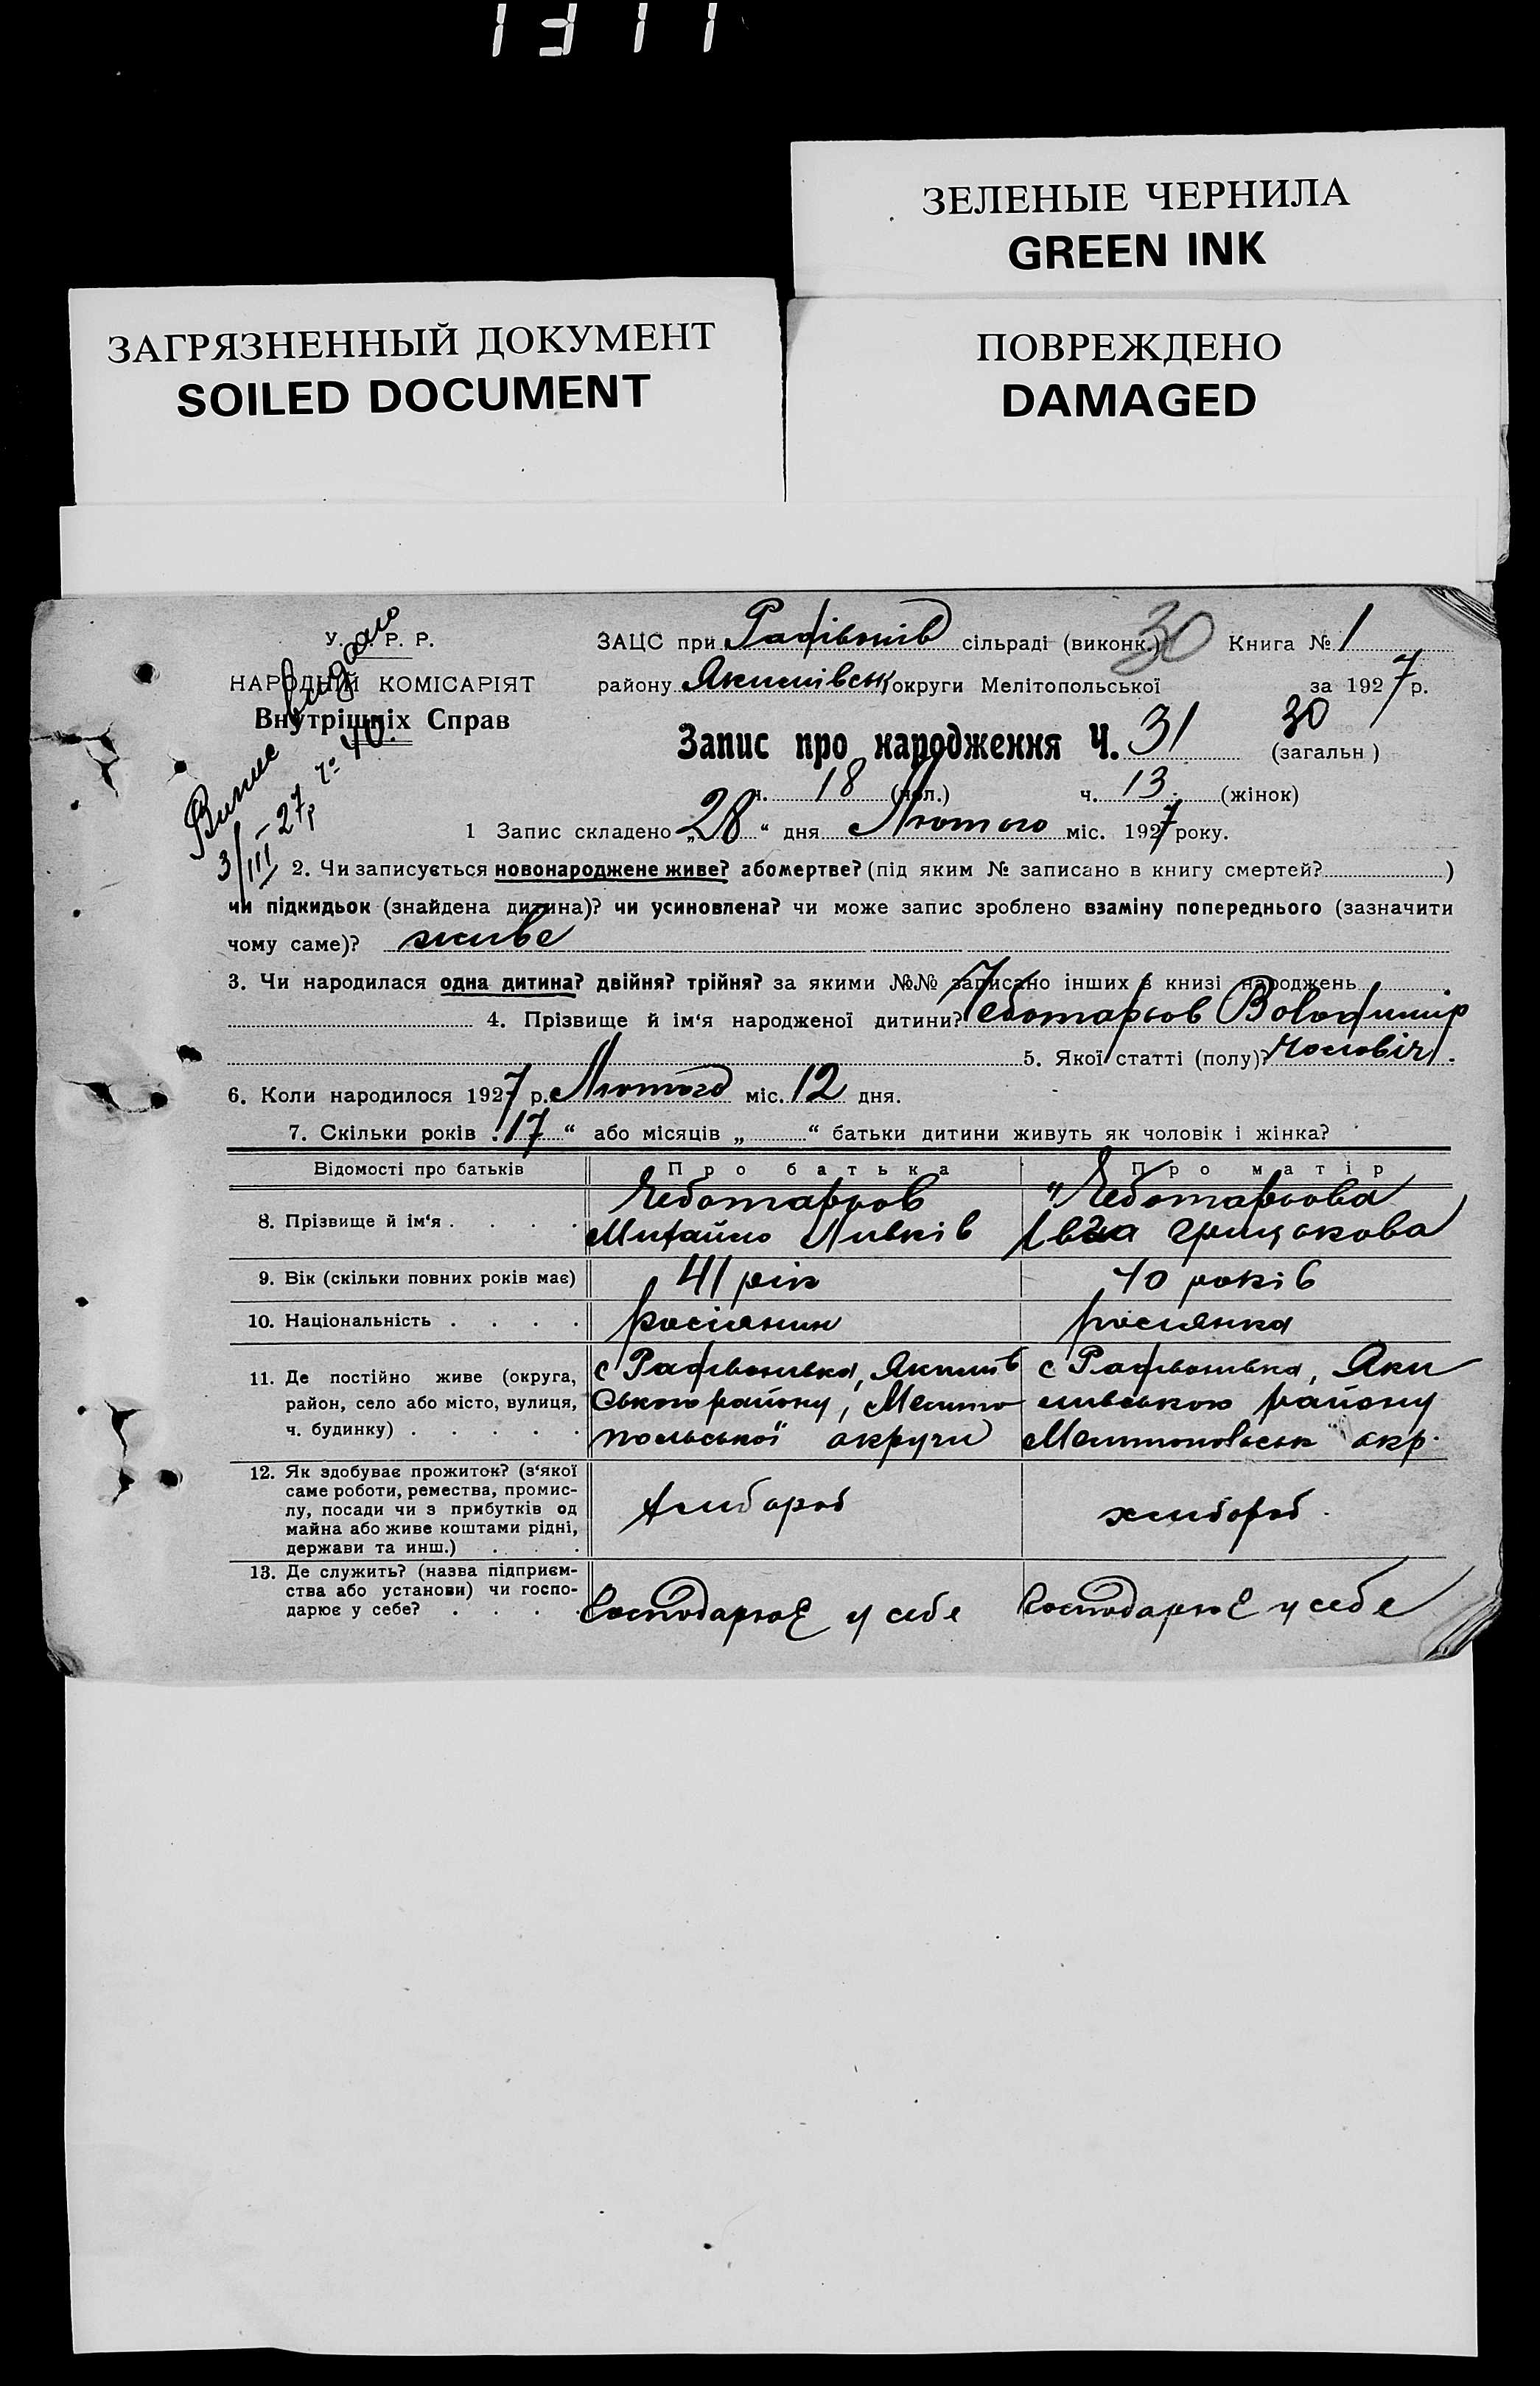 1311
ЗЕЛЕНЫЕ ЧЕРНИЛА
GREEN INK
ЗАГРЯЗНЕННЫЙ ДОКУМЕНТ
SOILED DOCUMENT
ПОВРЕЖДЕНО
DAMAGED
У. Р. Р.
НАРОДНІЙ КОМІСАРІЯТ
Внутрішніх Справ
Випис видано
3/III – 27р ч. 40.
ЗАЦС при Радівонів сільраді (виконк.) 30 Книга № 1
району Якимівськ округи Мелітопольської за 1927 р.
Запис про народження Ч. 31 30 (загальн)
ч. 18 (чол.) ч. 13. (жінок)
1 Запис складено „28“ дня Лютого міс. 1927 року.
2. Чи записується новонароджене живе? або мертве? (під яким № записано в книгу смертей? )
чи підкидьок (знайдена дитина)? чи усиновлена? чи може запис зроблено взаміну попереднього (зазначити
чому саме)? живе
3. Чи народилася одна дитина? двійня? трійня? за якими №№ записано інших в книзі народжень
4. Прізвище й ім‘я народженої дитини? Чеботарьов Володимир
5. Якої статті (полу)? чоловіч.
6. Коли народилося 1927 р. Лютого міс. 12 дня.
7. Скільки років 17 “ або місяців „ “ батьки дитини живуть як чоловік і жінка?
Відомості про батьків Про батька Про матір
8. Прізвище й ім‘я . . . . Чеботарьов Чеботарьова
Михайло Ливків грицькова
9. Вік (скільки повних років має) 41 рік 40 років
10. Національність . . . . росіянин росіянка
11. Де постійно живе (округа, с Радівонівка, Якимів с Радівонівка, Яки
район, село або місто, вулиця, ського району, Меліто мивського району
ч. будинку) . . . . . польської округи Мелітопольськ окр.
12. Як здобуває прожиток? (з‘якої
саме роботи, ремества, промис-
лу, посади чи з прибутків од хлибороб хлибороб.
майна або живе коштами рідні,
держави та инш.) . . .
13. Де служить? (назва підприєм-
ства або установи) чи госпо-
дарює у себе? . . . . Господарює у себе Господарює у себе